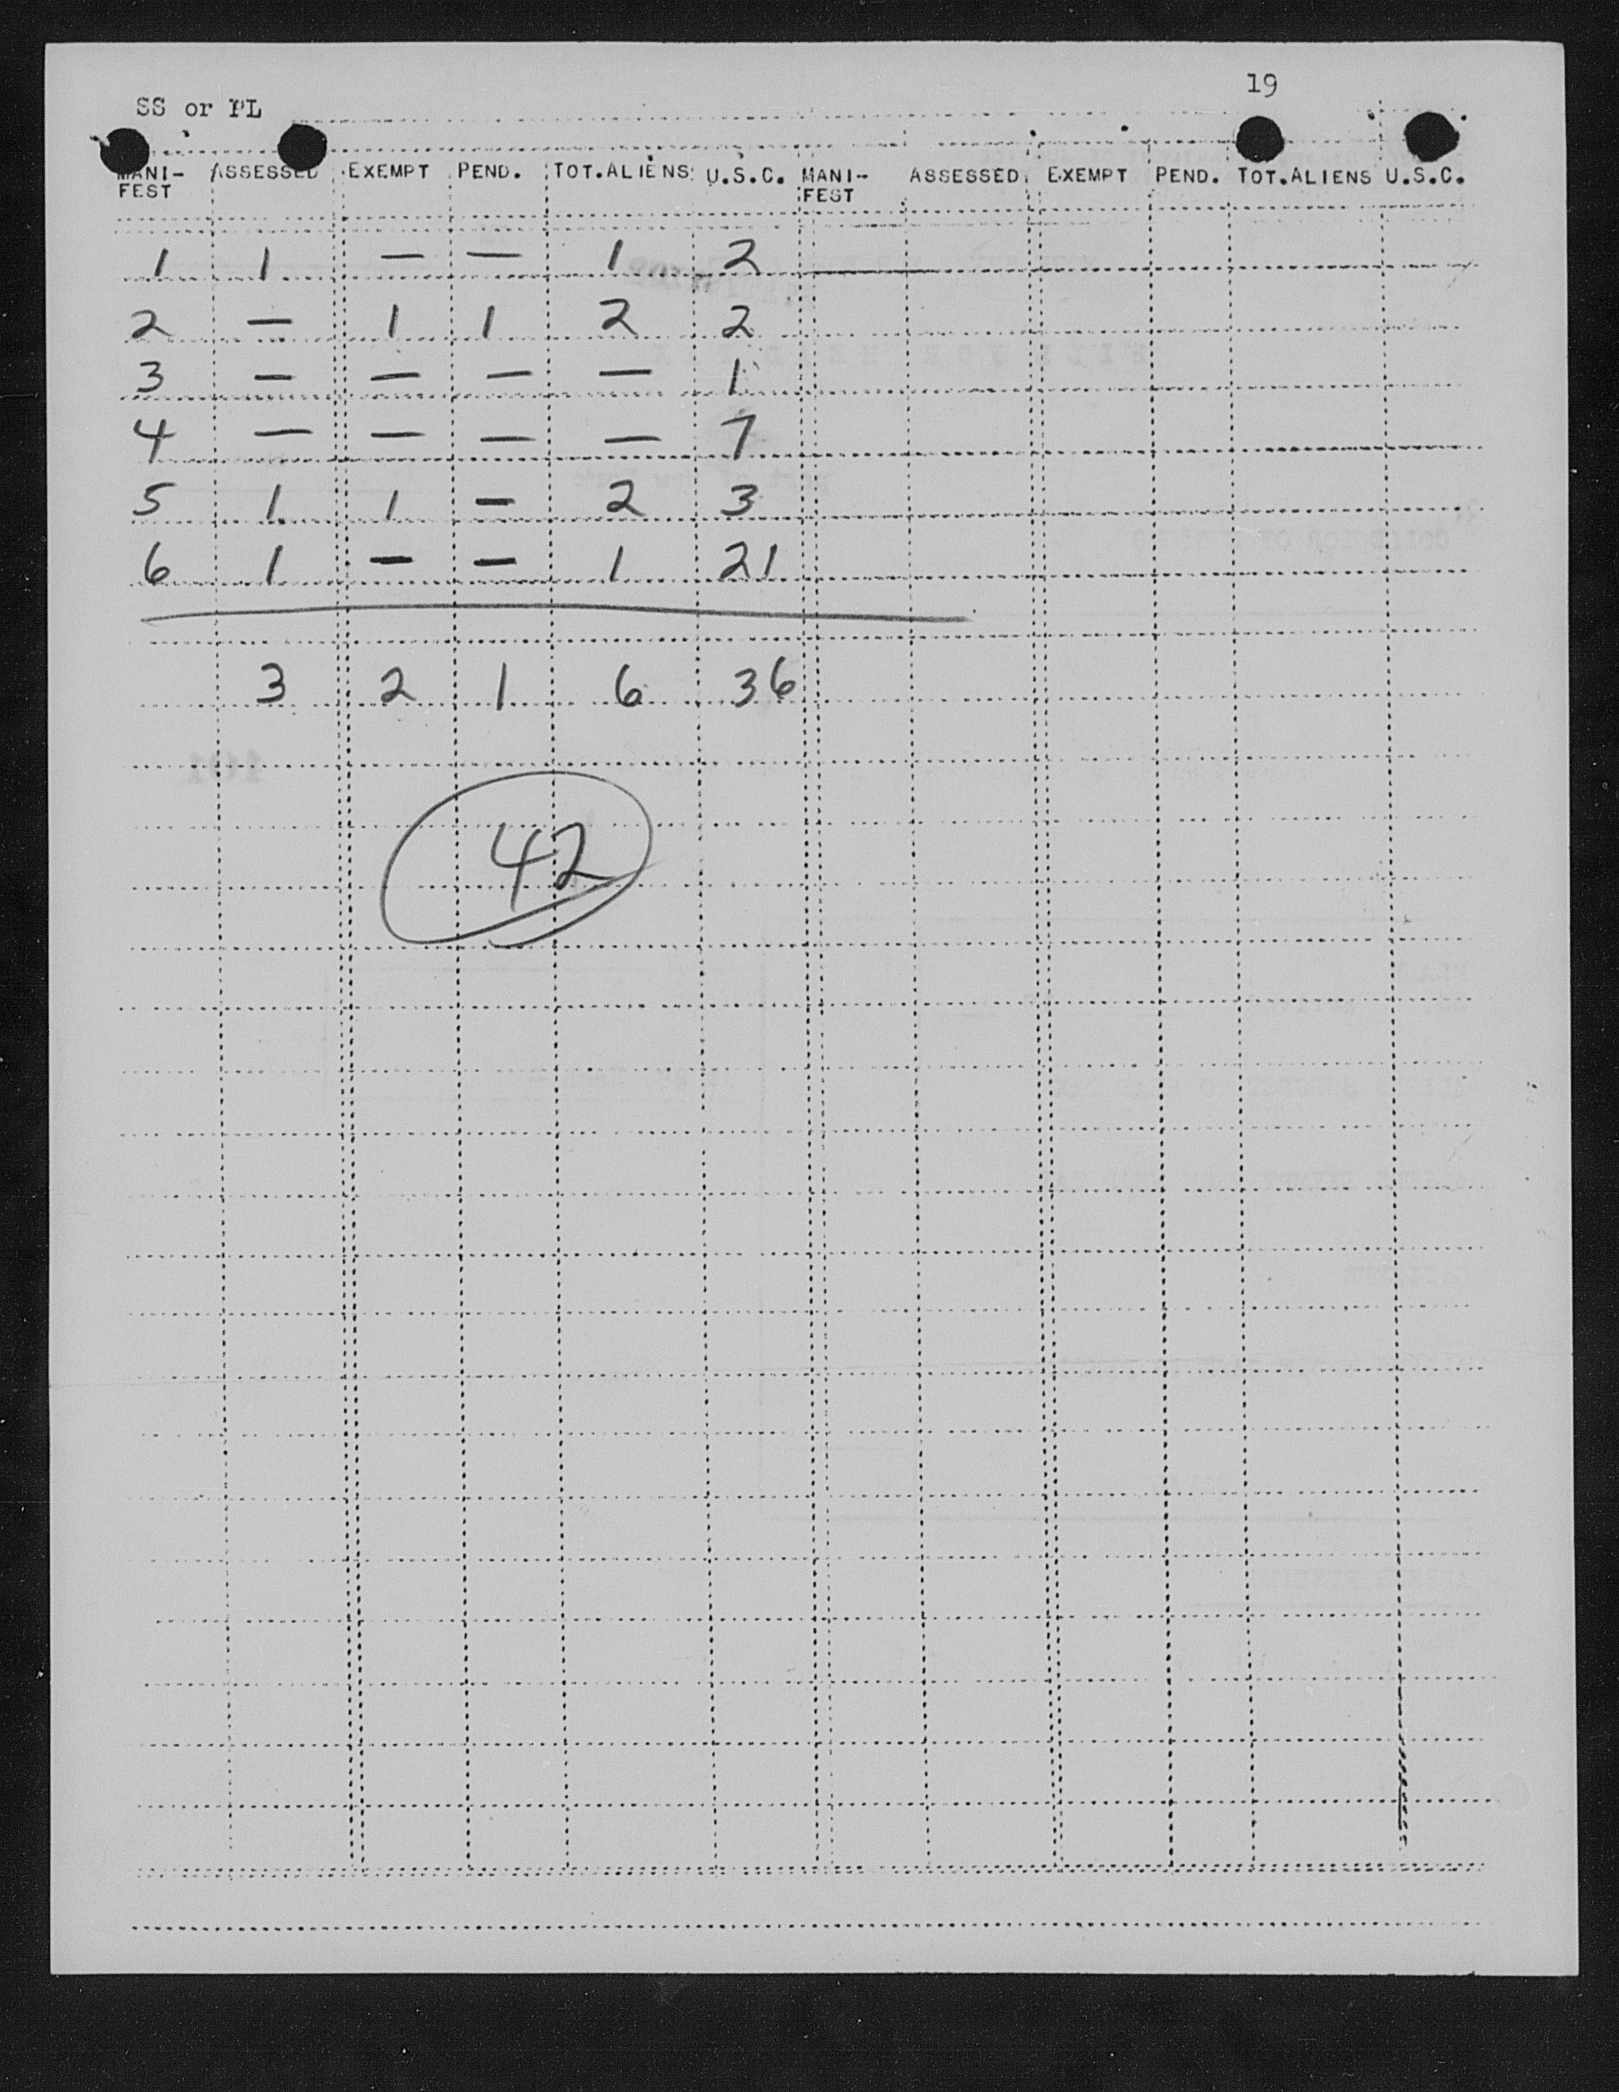 19
SS or PL
MANI- ASSESSED EXEMPT PEND. TOT.ALIENS U.S.C. MANI- ASSESSED EXEMPT PEND. TOT.ALIENS U.S.C.
FEST FEST
1 1 — — 1 2
2 — 1 1 2 2
3 — — — — 1
4 — — — — 7
5 1 1 — 2 3
6 1 — — 1 21
3 2 1 6 36
42